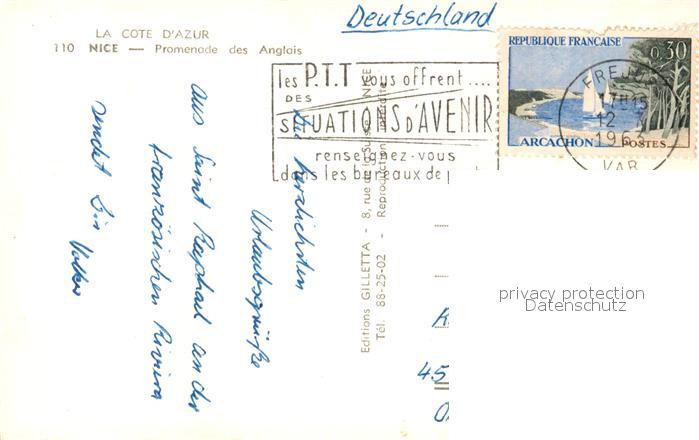 LA COTE D'AZUR
110 NICE — Promenade des Anglais
Deutschland
REPUBLIQUE FRANÇAISE
0,30
ARCACHON
POSTES
FREJUS
17H15
12
196
VAR
les P.T.T vous offrent....
DES
SITUATIONS D'AVENIR
renseignez-vous
dans les bureaux de
Die herzlichsten
Urlaubsgrüße
aus Saint Raphael an der
französischen Riviera
sendet Dir
Volker
Editions GILLETTA - 8, rue de la Suisse - NICE
Tél. 88-25-02 - Reproduction interdite
45
privacy protection
Datenschutz